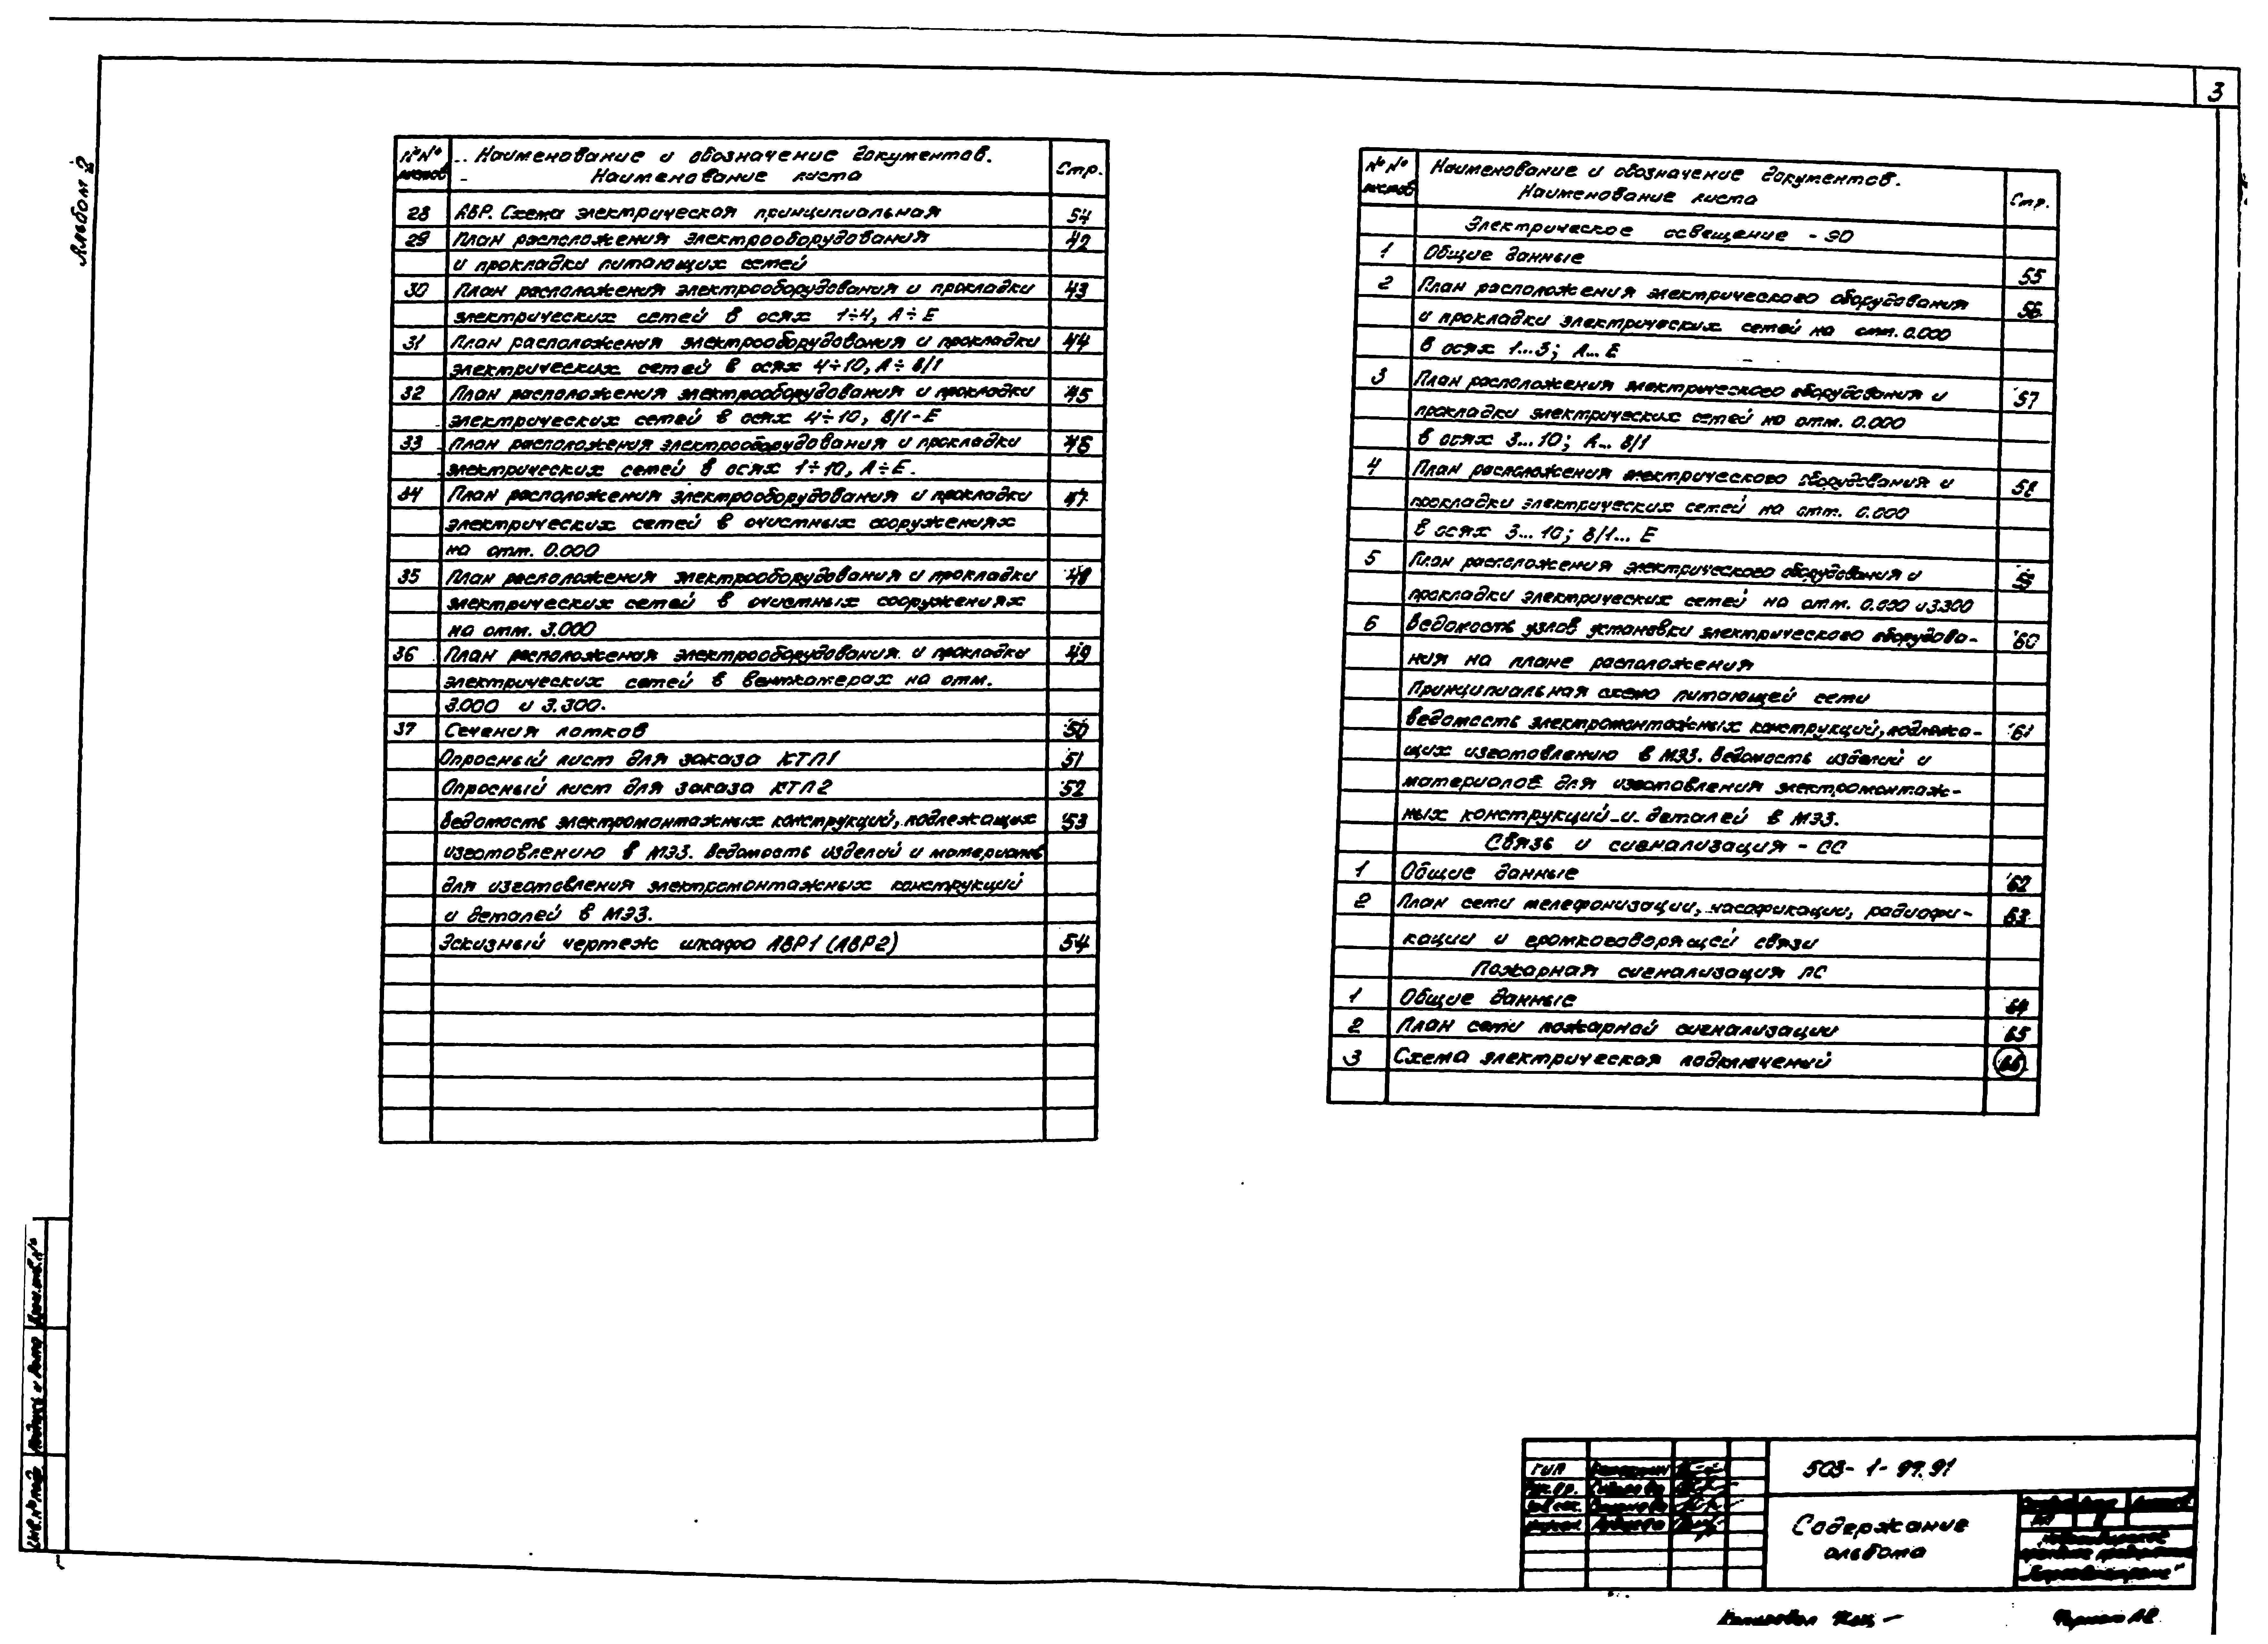 3
Альбом 2
№№ листов Наименование и обозначение документов. Стр.
Наименование листа
28 АВР. Схема электрическая принципиальная 54
29 План расположения электрооборудования 42
и прокладки питающих сетей
30 План расположения электрооборудования и прокладки 43
электрических сетей в осях 1÷4, А÷Е
31 План расположения электрооборудования и прокладки 44
электрических сетей в осях 4÷10, А÷В/1
32 План расположения электрооборудования и прокладки 45
электрических сетей в осях 4÷10, В/1-Е
33 План расположения электрооборудования и прокладки 46
электрических сетей в осях 1÷10, А÷Е.
34 План расположения электрооборудования и прокладки 47
электрических сетей в очистных сооружениях
на отм. 0.000
35 План расположения электрооборудования и прокладки 48
электрических сетей в очистных сооружениях
на отм. 3.000
36 План расположения электрооборудования и прокладки 49
электрических сетей в венткамерах на отм.
3.000 и 3.300.
37 Сечения лотков 50
Опросный лист для заказа КТП1 51
Опросный лист для заказа КТП2 52
Ведомость электромонтажных конструкций, подлежащих 53
изготовлению в МЭЗ. Ведомость изделий и материалов
для изготовления электромонтажных конструкций
и деталей в МЭЗ.
Эскизный чертеж шкафа АВР1 (АВР2) 54
№№ листов Наименование и обозначение документов. Стр.
Наименование листа
Электрическое освещение - ЭО
1 Общие данные 55
2 План расположения электрического оборудования 56
и прокладки электрических сетей на отм. 0.000
в осях 1...3; А...Е
3 План расположения электрического оборудования и 57
прокладки электрических сетей на отм. 0.000
в осях 3...10; А... В/1
4 План расположения электрического оборудования и 58
прокладки электрических сетей на отм. 0.000
в осях 3...10; В/1... Е
5 План расположения электрического оборудования и 59
прокладки электрических сетей на отм. 0.000 и 3.300
6 Ведомость узлов установки электрического оборудова- 60
ния на плане расположения
Принципиальная схема питающей сети
Ведомость электромонтажных конструкций, подлежа- 61
щих изготовлению в МЭЗ. Ведомость изделий и
материалов для изготовления электромонтаж-
ных конструкций и деталей в МЭЗ.
Связь и сигнализация - СС
1 Общие данные 62
2 План сети телефонизации, часофикации, радиофи- 63
кации и громкоговорящей связи
Пожарная сигнализация ПС
1 Общие данные 64
2 План сети пожарной сигнализации 65
3 Схема электрическая подключений 66
Инв.№ подл. Подпись и дата Взам.инв.№
ГИП
Рук.гр.
503-1-99.91
Содержание
альбома
Копировал
Формат А2